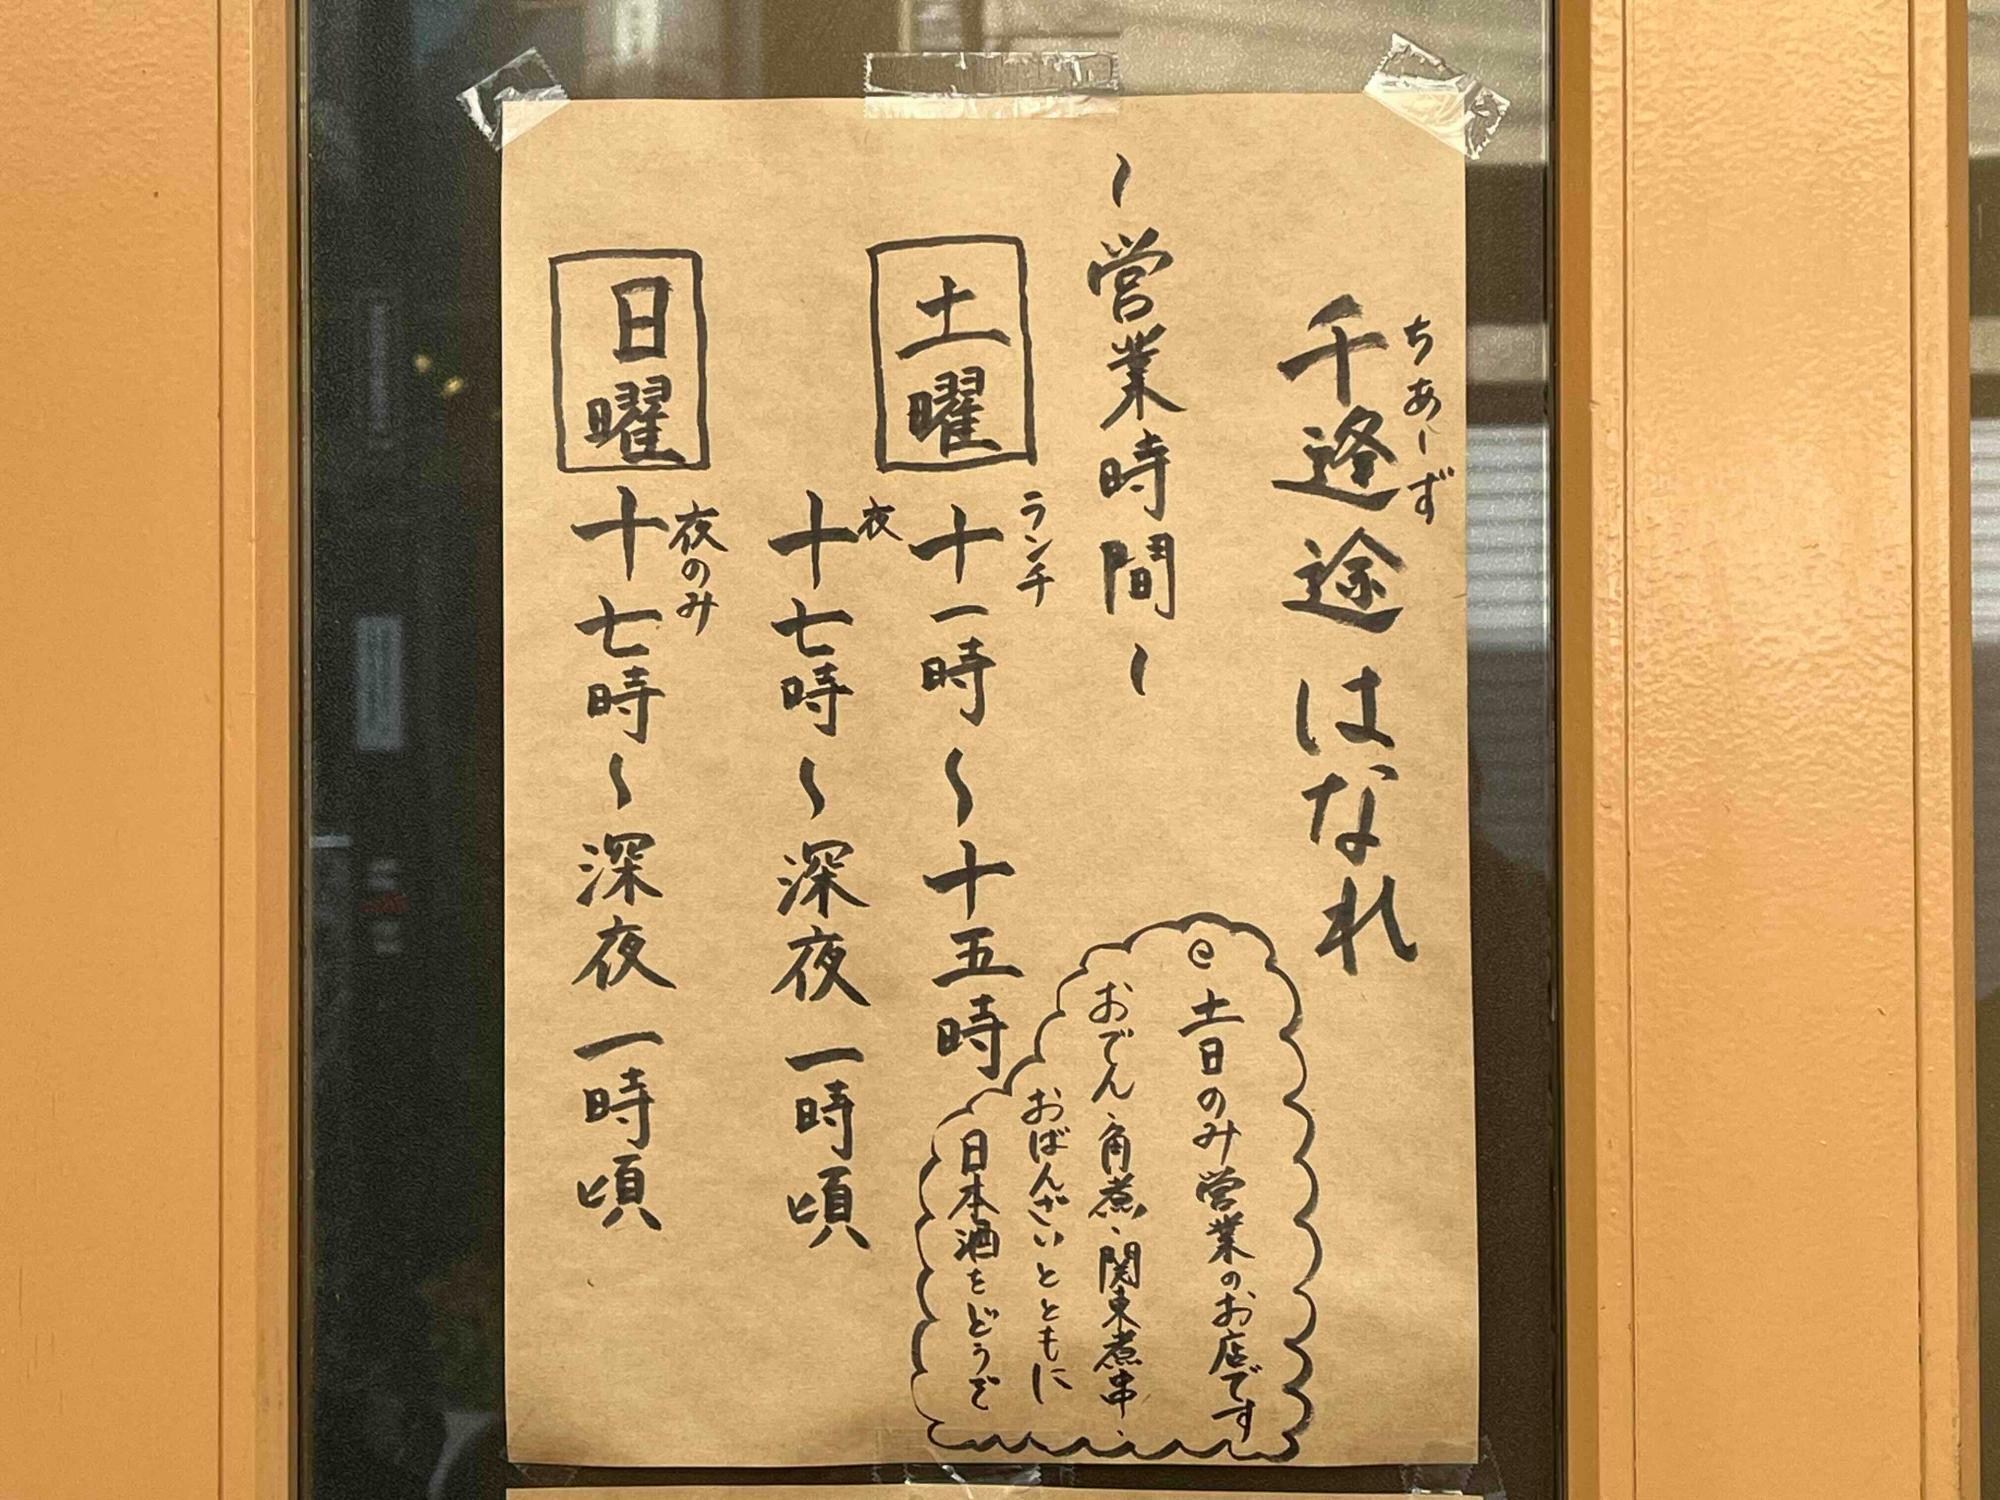 千逄途はなれ
ちあーず
〜営業時間〜
土曜
ランチ
十一時〜十五時
夜
十七時〜深夜一時頃
日曜
夜のみ
十七時〜深夜一時頃
土日のみ営業のお店です
おでん、角煮、関東煮串、
おばんざいとともに
日本酒をどうぞ